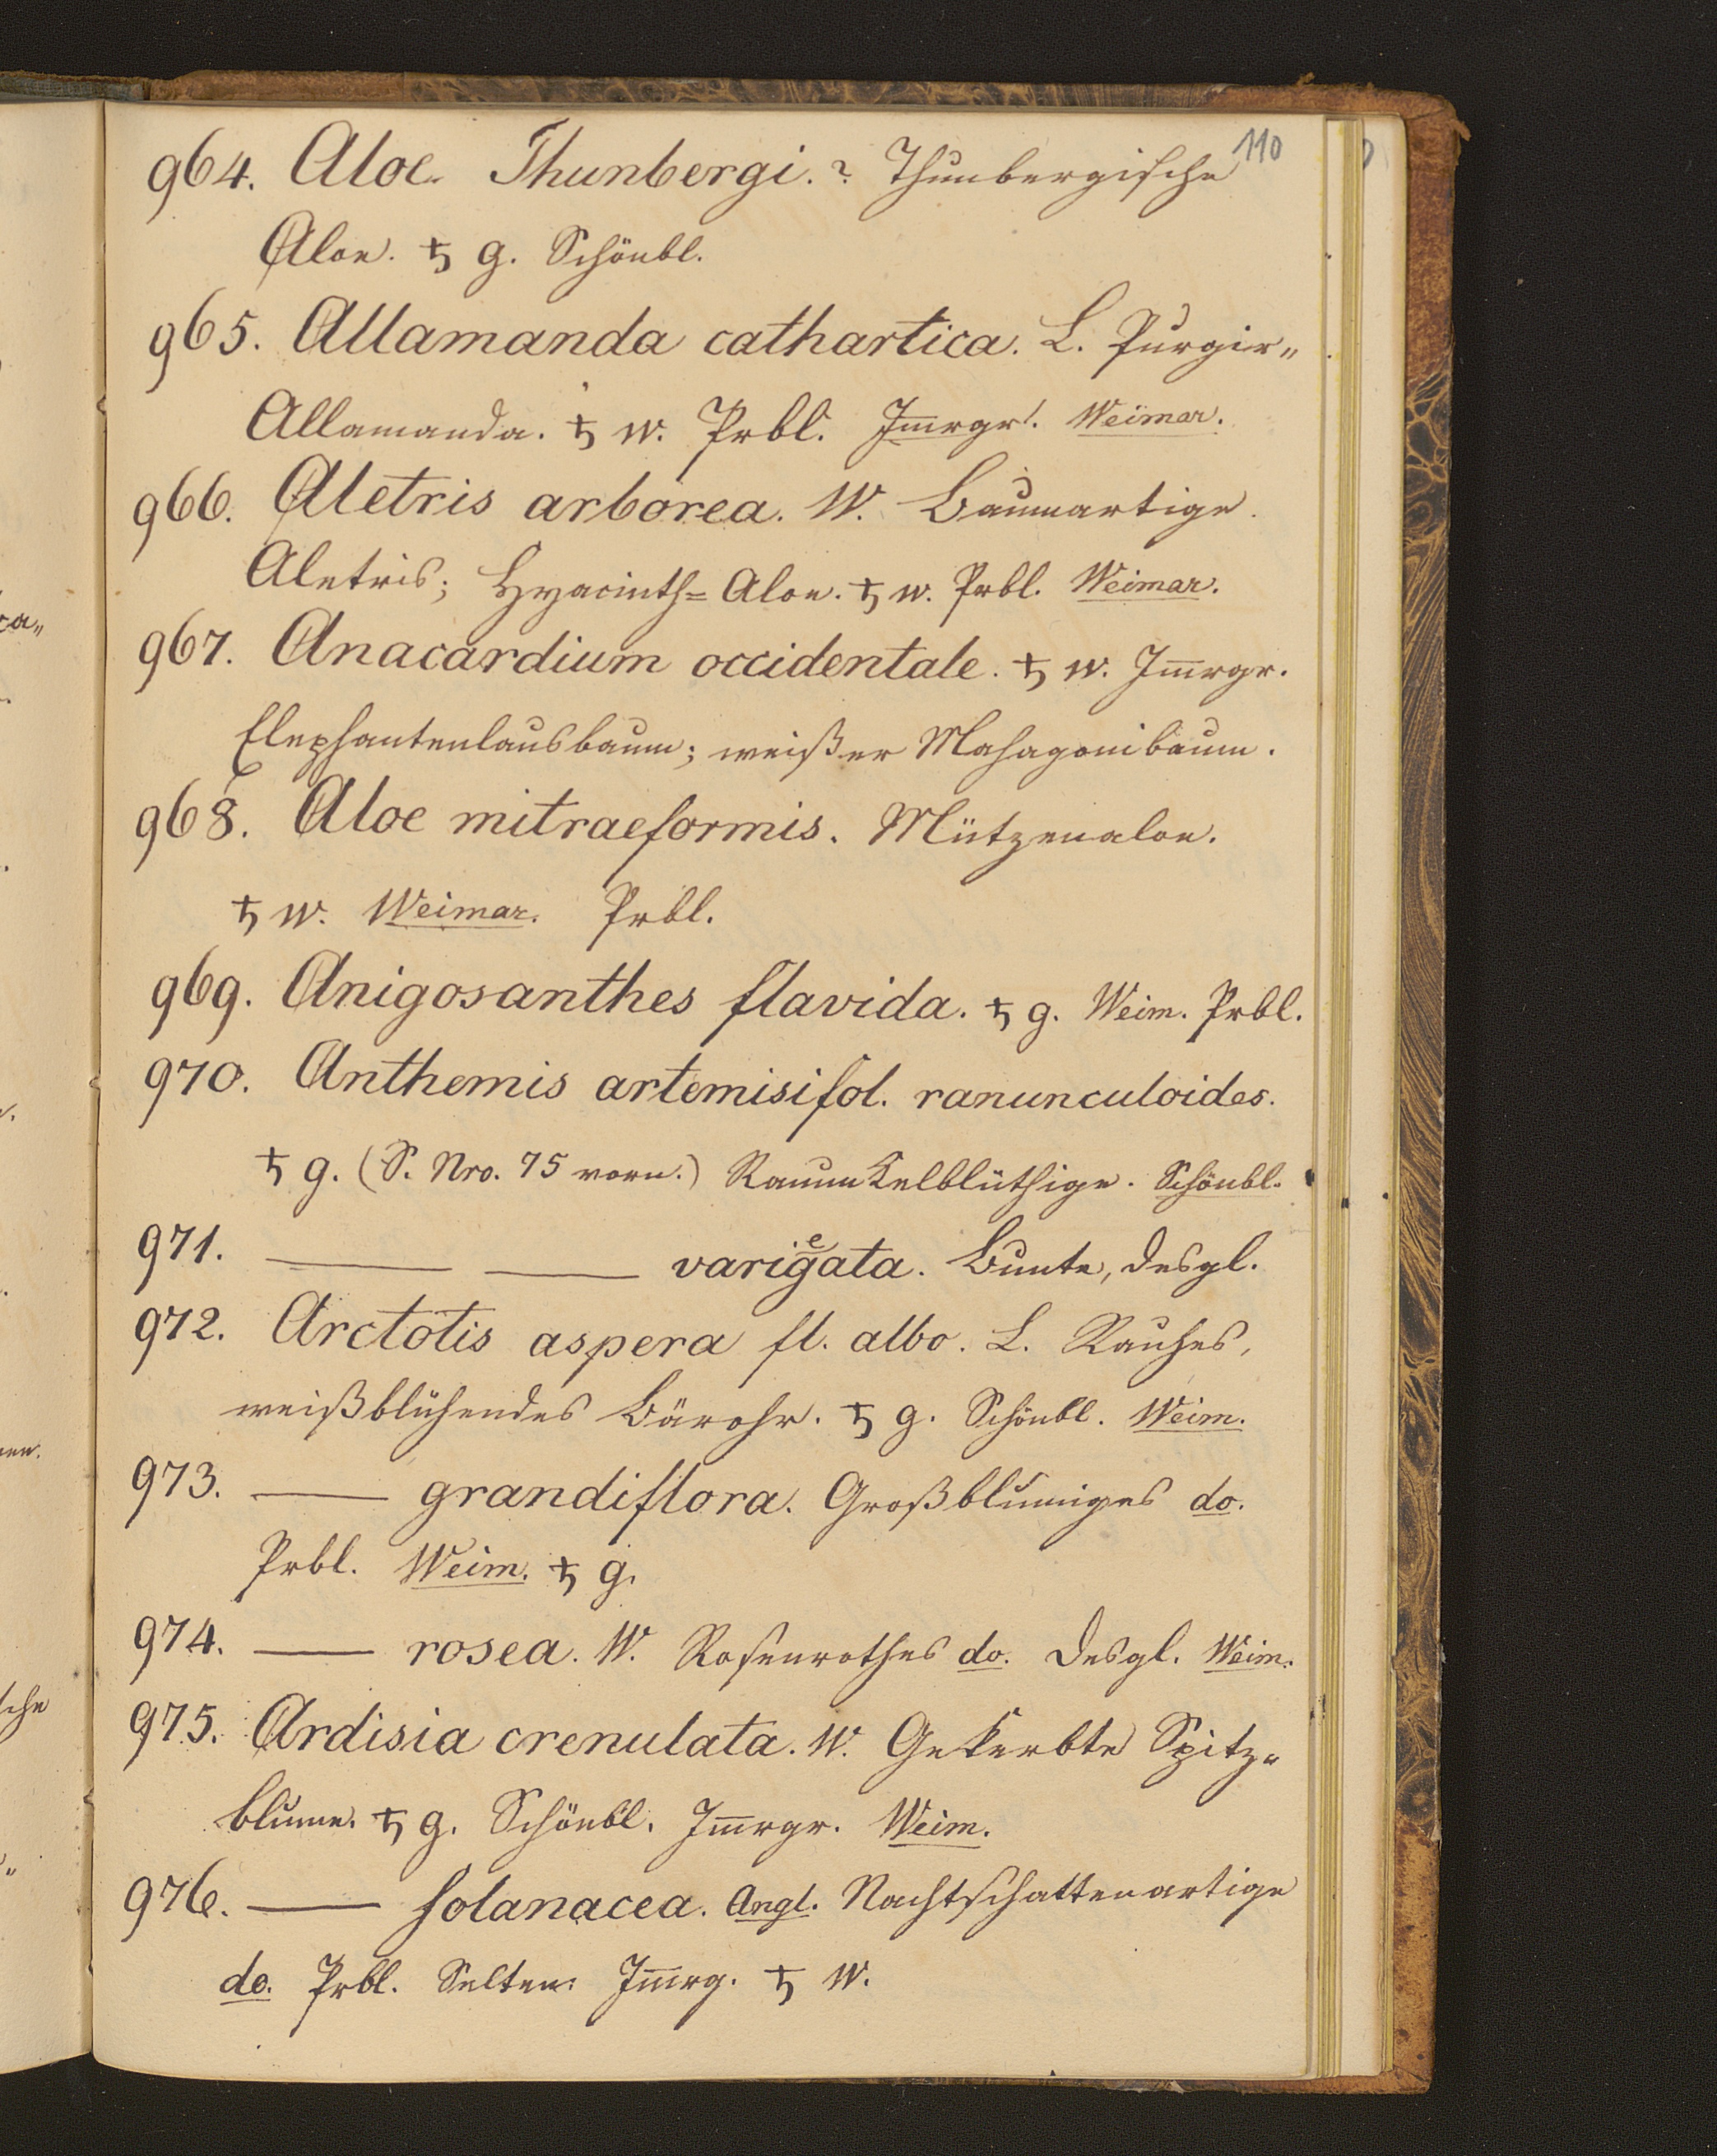 110
964. Aloe. Thunbergi.? Thunbergische
Aloe. ♄ g. Schönbl.
965. Allamanda cathartica. L. Purgir„
Allamanda. ♄ w. Prbl. Im̅rgr!. Weimar.
966. Aletris arborea. W. Baumartige.
Aletris; Hyacinth= Aloe. ♄ w. Prbl. Weimar.
967. Anacardium occidentale. ♄ w. Im̅rgr.
Elephantenlausbaum; weißer Mahagonibaum.
968. Aloe mitraeformis. Mützenaloe.
♄ w. Weimar. Prbl.
969. Anigosanthes flavida. ♄ g. Weim. Prbl.
970. Anthemis artemisifol. ranunculoides.
♄ g. (S. Nro. 75 vorn.) Ranunkelblüthige. Schönbl.
971. —— —— variegata. Bunte, desgl.
972. Arctotis aspera fl. albo. L. Rauhes,
weißblühendes Bärohr. ♄ g. Schönbl. Weim.
973. —— grandiflora. Großblumiges do.
Prbl. Weim. ♄ g.
974. —— rosea. W. Rosenrothes do. desgl. Weim.
975. Ardisia crenulata. W. Gekerbte Spitz=
blume. ♄ g. Schönbl. Im̅rgr. Weim.
976. —— solanacea. Angl. Nachtschattenartige
do. Prbl. Selten. Im̅rg. ♄ w.